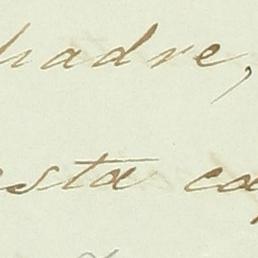 padre,
esta ca